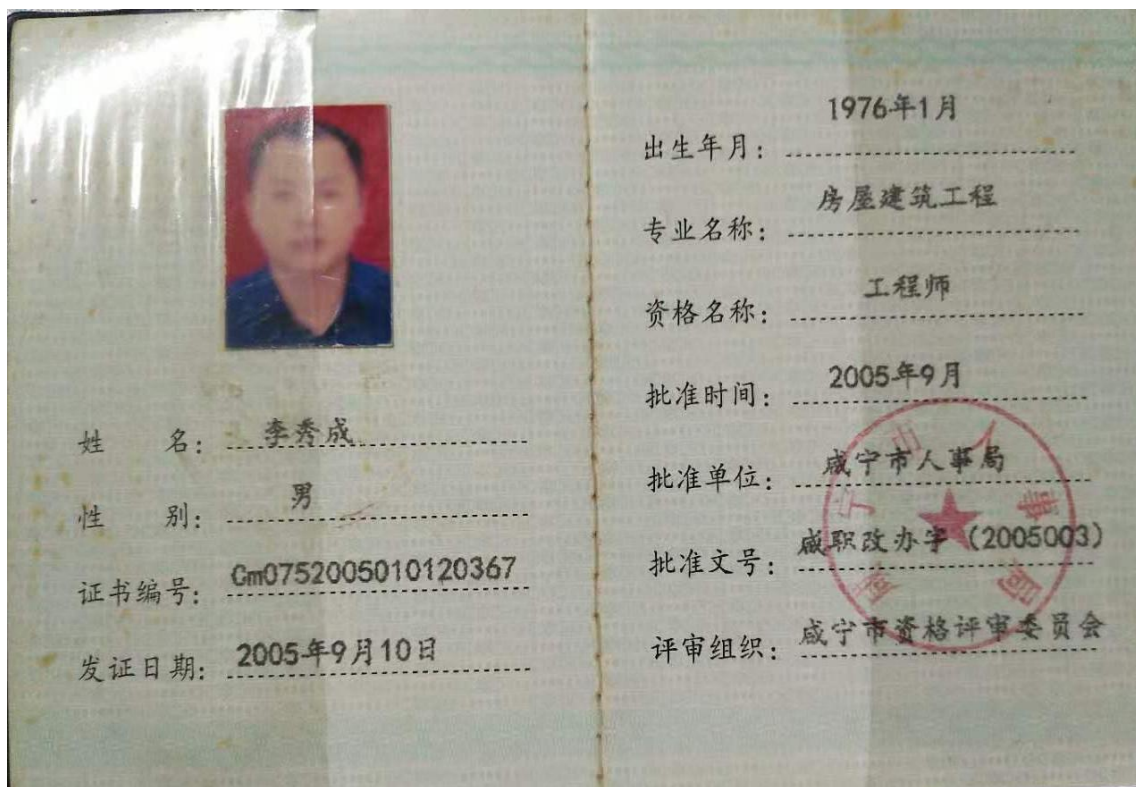 姓 名： 李秀成
性 别： 男
证书编号： Cm0752005010120367
发证日期： 2005年9月10日
出生年月： 1976年1月
专业名称： 房屋建筑工程
资格名称： 工程师
批准时间： 2005年9月
批准单位： 咸宁市人事局
批准文号： 咸职改办字（2005003）
评审组织： 咸宁市资格评审委员会
咸宁市人事局